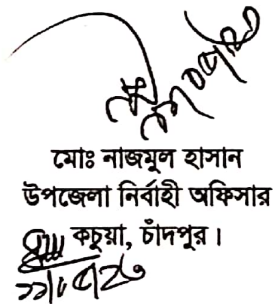 মোঃ নাজমুল হাসান
উপজেলা নির্বাহী অফিসার
কচুয়া, চাঁদপুর।